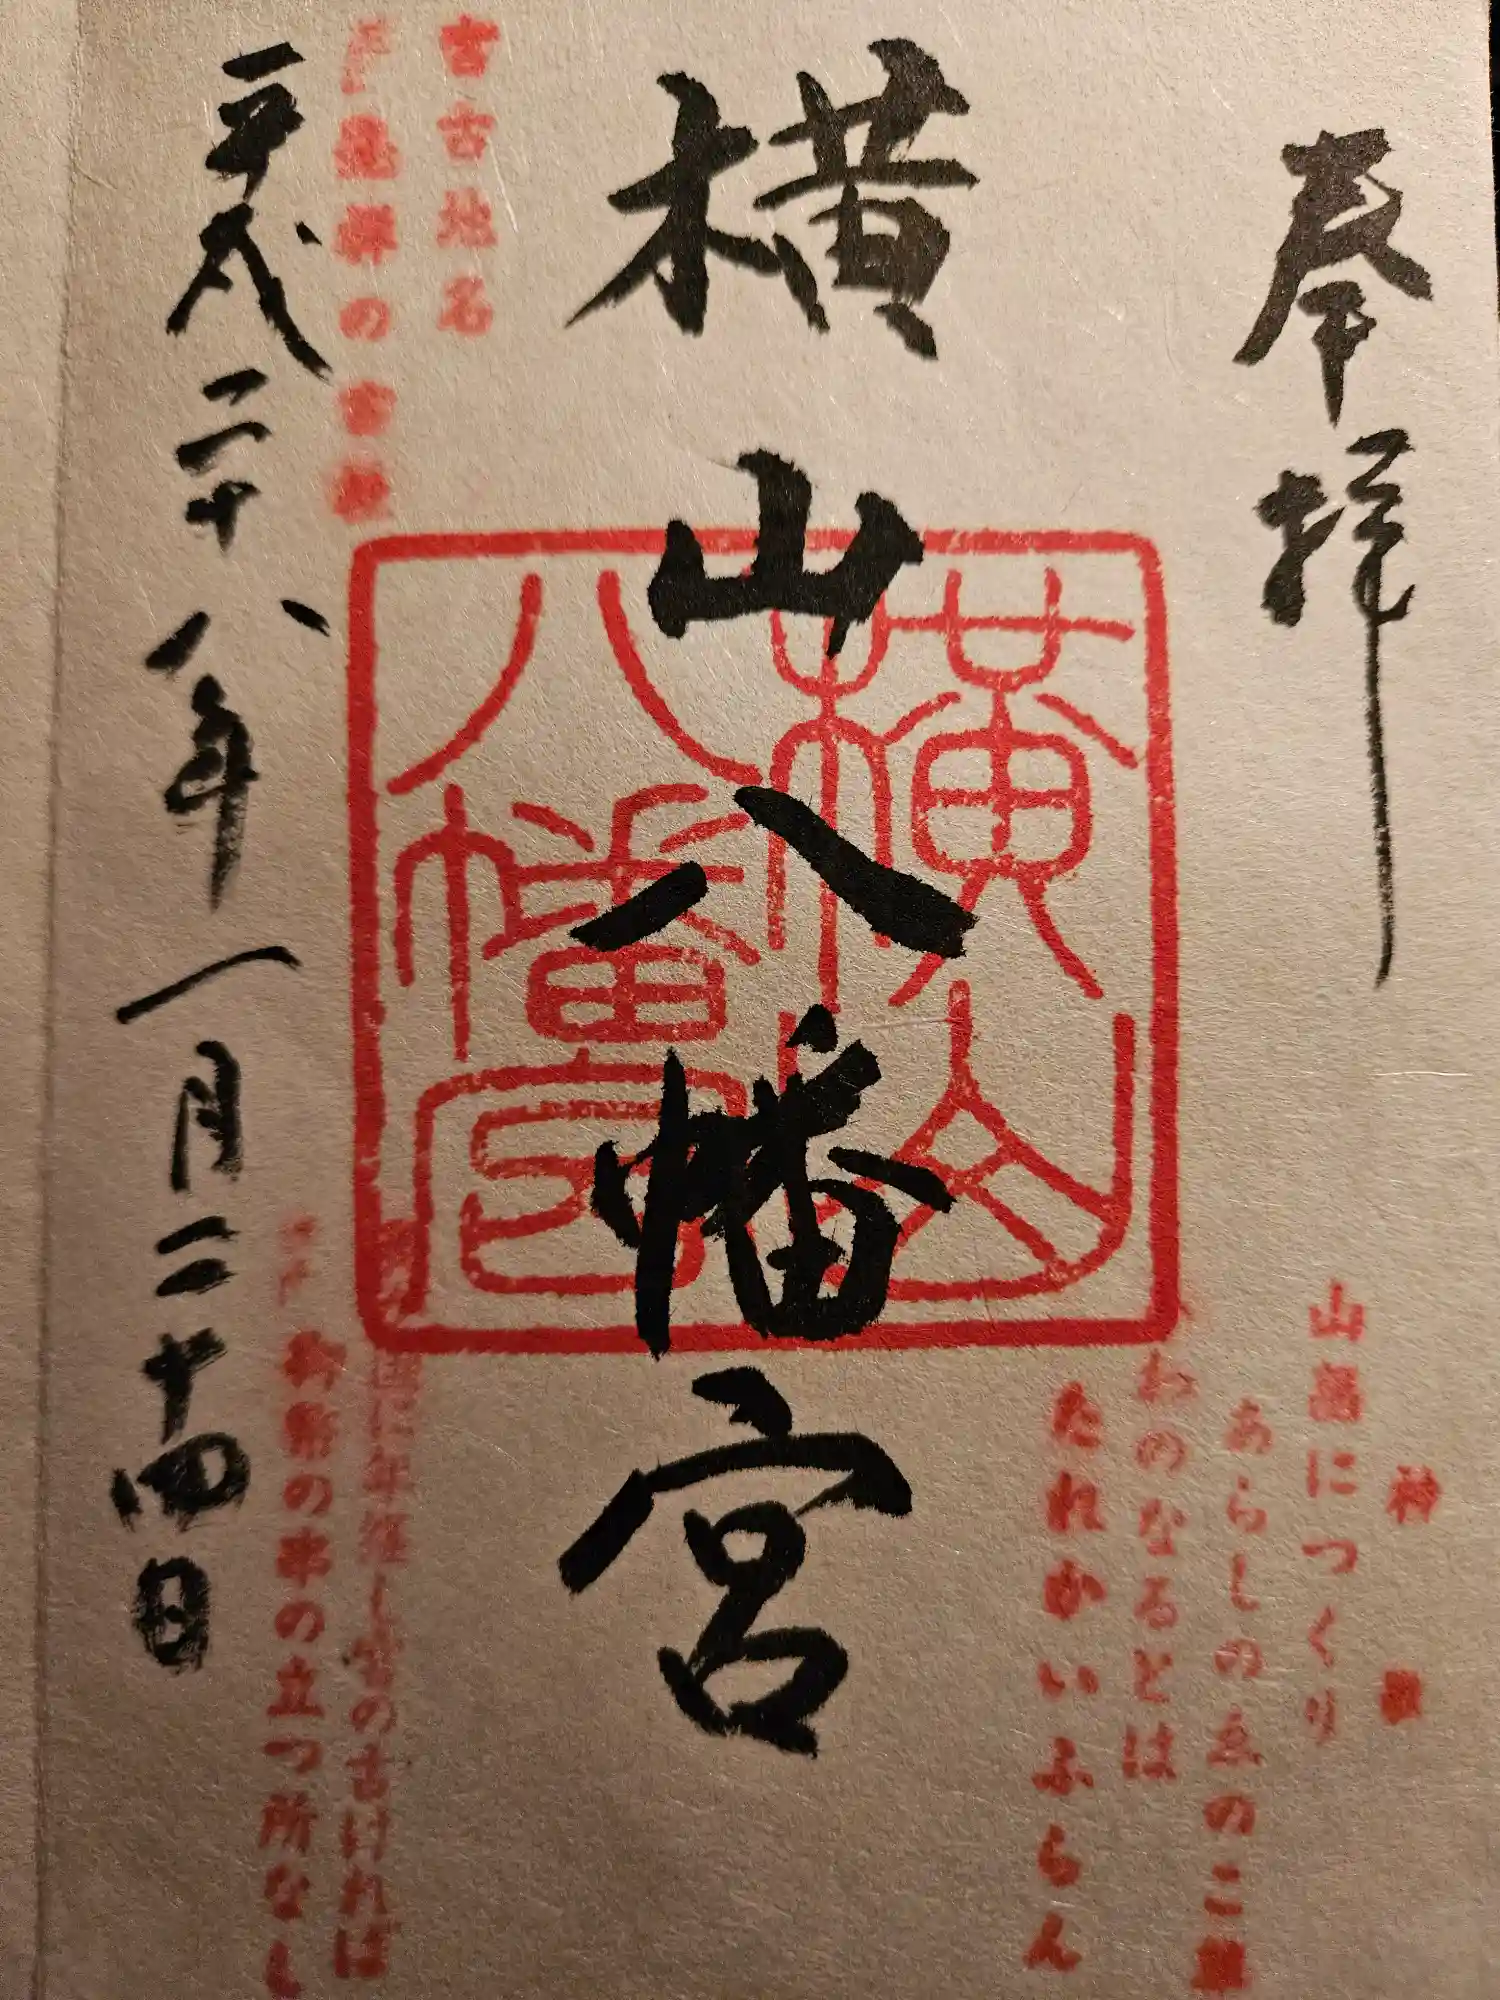 奉拝
神
山高につくり
あらしのゑのこ
わのなるとは
たれかいふらん
横山八幡宮
横山
八幡宮
宮古地名
の宮
に年経し宮の古ければ
の串の立つ所なし
平成二十八年一月二十四日